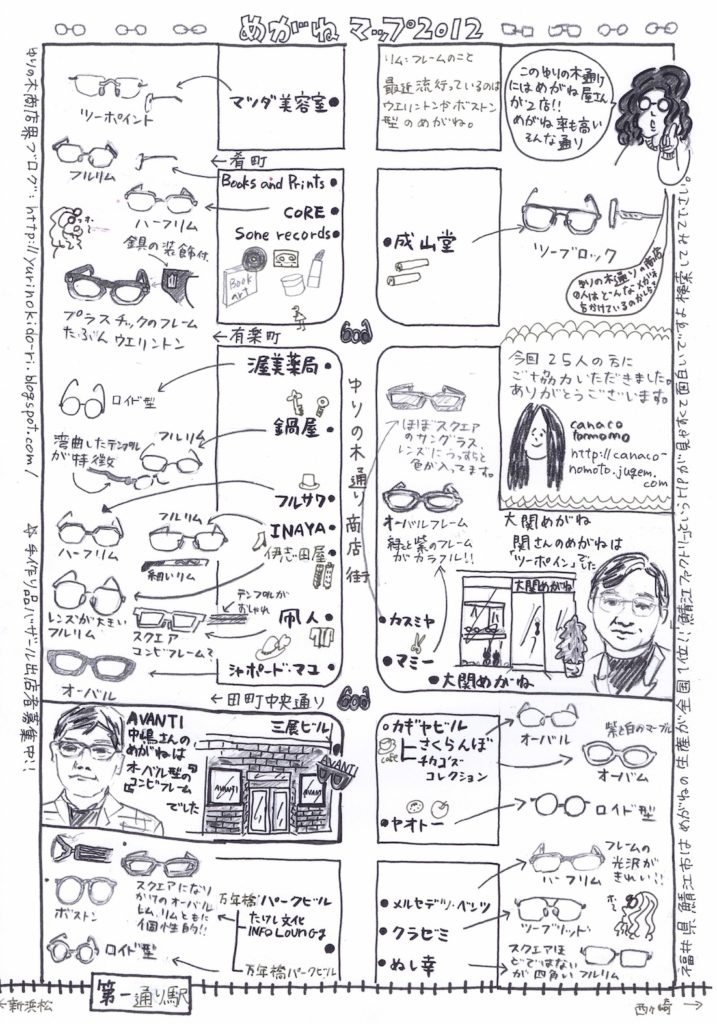 めがねマップ2012
ゆりの木商店界ブログ：http://yurinokido-ri.blogspot.com/
☆手作り品バザール出店者募集中!!
ツーポイント
マツダ美容室
リム：フレームのこと
最近流行っているのは
ウエリントンかボストン
型のめがね。
このゆりの木通りに
にはめがね屋さん
が2店!!
めがね率も高い
そんな通り
←肴町
フルリム
ハーフリム
Books and Prints
CORE
Sone records
Book
art
成山堂
ツーブロック
鋲具の装飾付
プラスチックのフレーム
たぶんウエリントン
←有楽町
ゆりの木通り商店街
渥美薬局
ロイド型
鍋屋
フルリム
弯曲したテンプル
が特徴
フルサワ
ハーフリム
INAYA
フルリム
細いリム
伊志田屋
レンズが大きい
フルリム
凧人
テンプルが
おしゃれ
スクエア
コンビフレーム？
シャポード・マユ
オーバル
ほぼスクエア
のサングラス。
レンズにうっすらと
色が入ってます。
オーバルフレーム
緑と紫のフレーム
がカラフル!!
今回25人の方に
ご協力いただきました。
ありがとうございます。
canaco
tomomo
http://canaco-
nomoto.jugem.
com
大関めがね
関さんのめがねは
「ツーポイント」でした
大関めがね
カスミヤ
マミー
大関めがね
←田町中央通り
AVANTI
中嶋さんの
めがねは
オーバル型の
コンビフレーム
でした
三展ビル
AVANTI
AVANTI
AVANTI
カギヤビル
さくらんぼ
チカコズ
コレクション
cafe
オーバル
紫と白のマーブル
オーバム
ヤオトー
ロイド型
ボストン
スクエアになり
かけのオーバル
リム、リムともに
個性的!!
ロイド型
万年橋パークビル
たけし文化
INFO LOUNGE
万年橋パークビル
メルセデツ・ベンツ
クラゼミ
ぬし幸
フレームの
光沢が
きれい!!
ハーフリム
ツーブリッド
スクエアほ
どではない
が四角いフルリム
福井県鯖江市はめがねの生産が全国1位!!「鯖江ファクトリー」というHPが見やすくて面白いですよ検索してみて下さい。
第一通り駅
←新浜松
西ヶ崎→